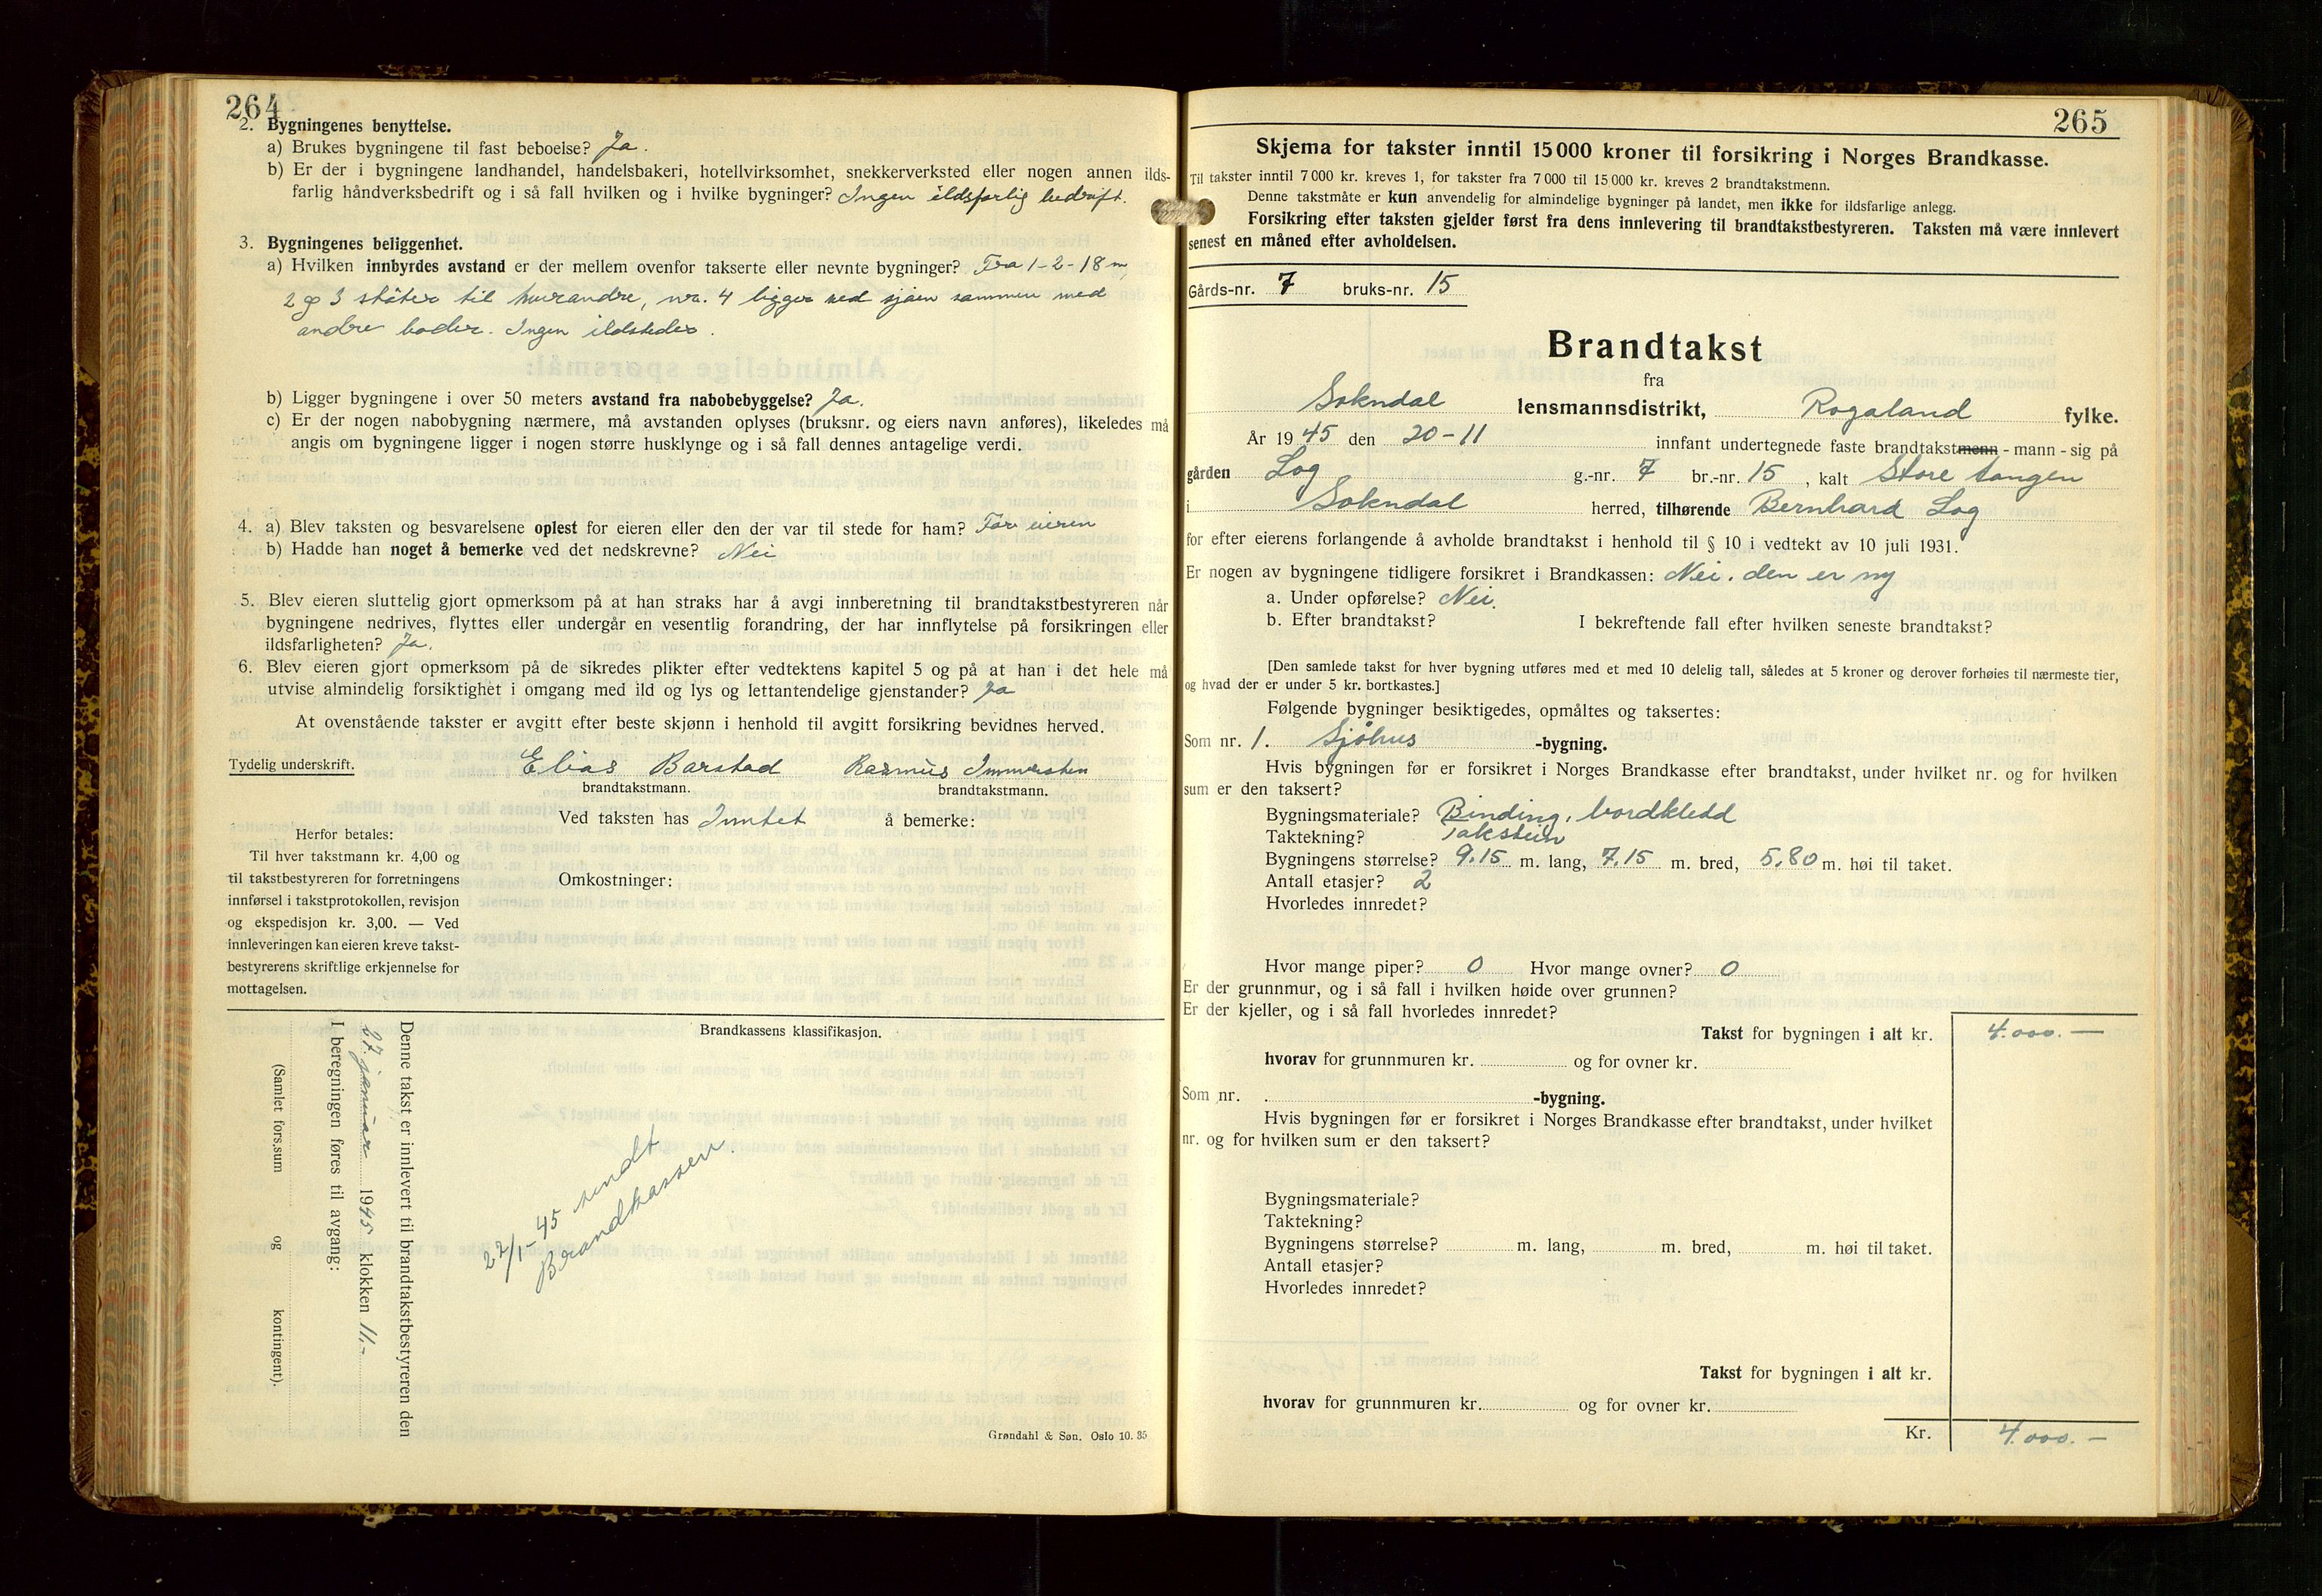 264
2. Bygningenes benyttelse.
a) Brukes bygningene til fast beboelse? Ja.
b) Er der i bygningene landhandel, handelsbakeri, hotellvirksomhet, snekkerverksted eller nogen annen ilds-
farlig håndverksbedrift og i så fall hvilken og i hvilke bygninger? Ingen ildsfarlig bedrift.
3. Bygningenes beliggenhet.
a) Hvilken innbyrdes avstand er der mellem ovenfor takserte eller nevnte bygninger? Fra 1-2-18 m,
2 og 3 støter til hverandre, nr. 4 ligger ved sjøen sammen med
andre boder. Ingen ildsteder.
b) Ligger bygningene i over 50 meters avstand fra nabobebyggelse? Ja.
c) Er der nogen nabobygning nærmere, må avstanden oplyses (bruksnr. og eiers navn anføres), likeledes må
angis om bygningene ligger i nogen større husklynge og i så fall dennes antagelige verdi.
4. a) Blev taksten og besvarelsene oplest for eieren eller den der var til stede for ham? For eieren
b) Hadde han noget å bemerke ved det nedskrevne? Nei
5. Blev eieren sluttelig gjort opmerksom på at han straks har å avgi innberetning til brandtakstbestyreren når
bygningene nedrives, flyttes eller undergår en vesentlig forandring, der har innflytelse på forsikringen eller
ildsfarligheten? Ja.
6. Blev eieren gjort opmerksom på de sikredes plikter efter vedtektens kapitel 5 og på at han i det hele må
utvise almindelig forsiktighet i omgang med ild og lys og lettantendelige gjenstander? Ja
At ovenstående takster er avgitt efter beste skjønn i henhold til avgitt forsikring bevidnes herved.
Tydelig underskrift. Elias Barstad Rasmus
brandtakstmann. brandtakstmann.
Ved taksten has Inntet å bemerke:
Herfor betales:
Til hver takstmann kr. 4,00 og
til takstbestyreren for forretningens
innførsel i takstprotokollen, revisjon
og ekspedisjon kr. 3,00. — Ved
innleveringen kan eieren kreve takst-
bestyrerens skriftlige erkjennelse for
mottagelsen.
Omkostninger:
Brandkassens klassifikasjon.
Denne takst er innlevert til brandtakstbestyreren den
27. januar 1945 klokken 11,-
I beregningen føres til avgang:
(Samlet fors.sum og kontingent).
22/1-45 sendt
Brandkassen.
Grøndahl & Søn, Oslo 10. 35
265
Skjema for takster inntil 15000 kroner til forsikring i Norges Brandkasse.
Til takster inntil 7 000 kr. kreves 1, for takster fra 7 000 til 15 000 kr. kreves 2 brandtakstmenn.
Denne takstmåte er kun anvendelig for almindelige bygninger på landet, men ikke for ildsfarlige anlegg.
Forsikring efter taksten gjelder først fra dens innlevering til brandtakstbestyreren. Taksten må være innlevert
senest en måned efter avholdelsen.
Gårds-nr. 7 bruks-nr. 15
Brandtakst
fra
Sokndal lensmannsdistrikt, Rogaland fylke.
År 1945 den 20-11 innfant undertegnede faste brandtakstmenn - mann - sig på
gården Log g.-nr. 7 br.-nr. 15, kalt Store tangen
i Sokndal herred, tilhørende Bernhard Log
for efter eierens forlangende å avholde brandtakst i henhold til § 10 i vedtekt av 10 juli 1931.
Er nogen av bygningene tidligere forsikret i Brandkassen: Nei. den er ny
a. Under opførelse? Nei.
b. Efter brandtakst? I bekreftende fall efter hvilken seneste brandtakst?
[Den samlede takst for hver bygning utføres med et med 10 delelig tall, således at 5 kroner og derover forhøies til nærmeste tier,
og hvad der er under 5 kr. bortkastes.]
Følgende bygninger besiktigedes, opmåltes og taksertes:
Som nr. 1. Sjöhus -bygning.
Hvis bygningen før er forsikret i Norges Brandkasse efter brandtakst, under hvilket nr. og for hvilken
sum er den taksert?
Bygningsmateriale? Binding, bordkledd
Taktekning? Takstein
Bygningens størrelse? 9.15 m. lang, 7.15 m. bred, 5.80 m. høi til taket.
Antall etasjer? 2
Hvorledes innredet?
Hvor mange piper? 0 Hvor mange ovner? 0
Er der grunnmur, og i så fall i hvilken høide over grunnen?
Er der kjeller, og i så fall hvorledes innredet?
Takst for bygningen i alt kr. 4.000.—
hvorav for grunnmuren kr. og for ovner kr.
Som nr. . -bygning.
Hvis bygningen før er forsikret i Norges Brandkasse efter brandtakst, under hvilket
nr. og for hvilken sum er den taksert?
Bygningsmateriale?
Taktekning?
Bygningens størrelse? m. lang, m. bred, m. høi til taket.
Antall etasjer?
Hvorledes innredet?
Takst for bygningen i alt kr.
hvorav for grunnmuren kr. og for ovner kr.
Kr. 4.000.—